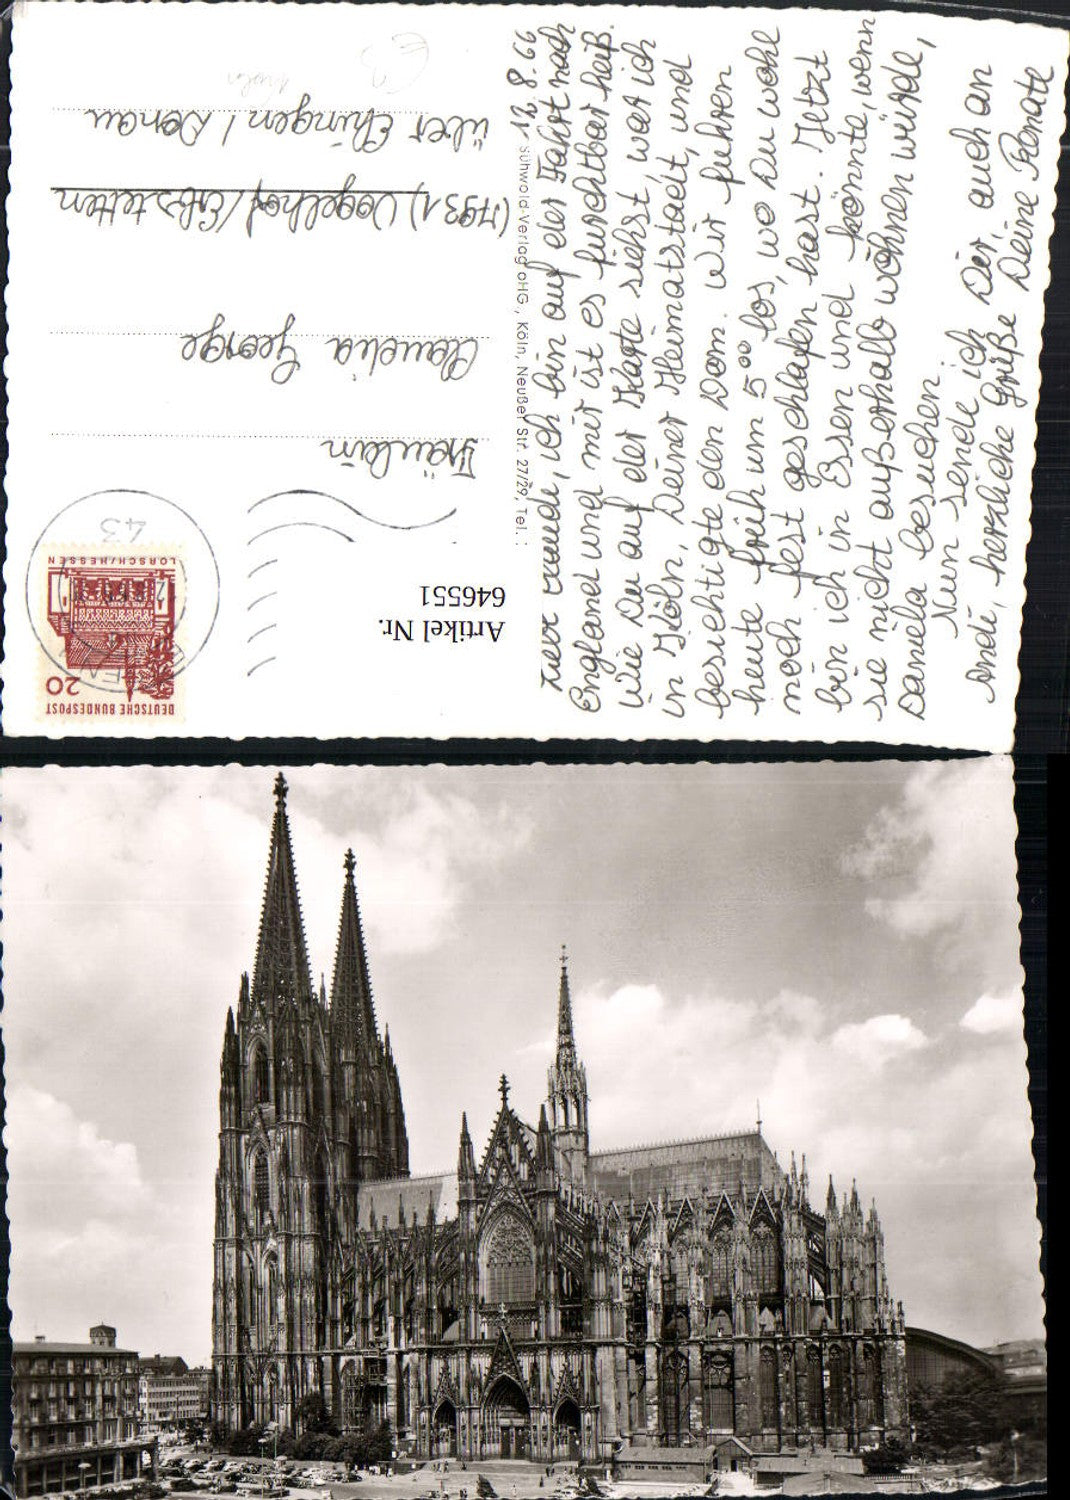 12.8.66
Liebe Claudi, ich bin auf der Fahrt nach
England und mir ist es furchtbar heiß.
Wie Du auf der Karte siehst, war ich
in Köln, Deiner Heimatstadt, und
besichtigte den Dom. Wir fuhren
heute früh um 5⁰⁰ los, wo Du wohl
noch fest geschlafen hast. Jetzt
bin ich in Essen und könnte, wenn
sie nicht außerhalb wohnen würde,
Daniela besuchen.
Nun sende ich Dir, auch an
Andi, herzliche Grüße Deine Renate
Sühwold-Verlag oHG, Köln, Neußer Str. 27/29, Tel.:
DEUTSCHE BUNDESPOST
20
LORSCH/HESSEN
ESSEN
43
Artikel Nr.
646551
Fräulein
Claudia George
(7931) Vogelhof/Erbstetten
über Ehingen/Donau
Köln